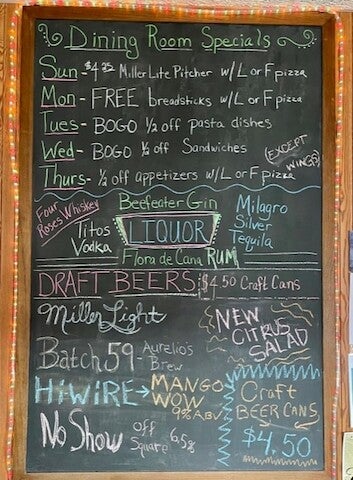 Dining Room Specials
Sun - $4.25 Miller Lite Pitcher w/ L or F pizza
Mon - FREE breadsticks w/ L or F pizza
Tues - BOGO 1/2 off pasta dishes
Wed - BOGO 1/2 off Sandwiches
(EXCEPT WINGS)
Thurs - 1/2 off appetizers w/ L or F pizza
Four Roses Whiskey
Beefeater Gin
Milagro
Silver
Tequila
Titos
Vodka
LIQUOR
Flora de Cana RUM
DRAFT BEERS: $4.50 Craft Cans
Miller Light
NEW
CITRUS
SALAD
Batch 59 - Aurelio's
Brew
HiWIRE → MANGO
WOW
9% ABV
Craft
BEER CANS
$4.50
No Show off
Square 6.5%